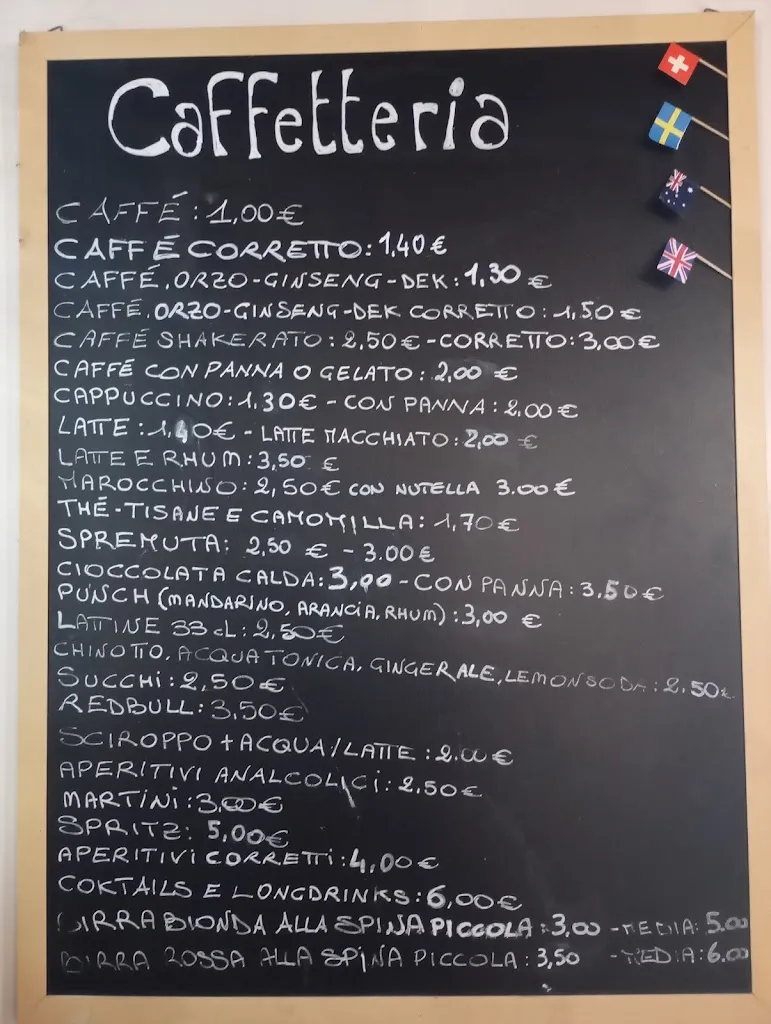 Caffetteria
CAFFÉ: 1,00€
CAFFÉ CORRETTO: 1,40€
CAFFÉ, ORZO-GINSENG-DEK: 1,30 €
CAFFÉ, ORZO-GINSENG-DEK CORRETTO: 1,50 €
CAFFÉ SHAKERATO: 2,50€-CORRETTO: 3,00€
CAFFÉ CON PANNA O GELATO: 2,00 €
CAPPUCCINO: 1,30€ - CON PANNA: 2,00€
LATTE: 1,40€ - LATTE MACCHIATO: 2,00 €
LATTE E RHUM: 3,50 €
MAROCCHINO: 2,50€ CON NUTELLA 3.00€
THÉ-TISANE E CAMOMILLA: 1,70€
SPREMUTA: 2,50 € - 3.00€
CIOCCOLATA CALDA: 3,00 - CON PANNA: 3.50€
PUNCH (MANDARINO, ARANCIA, RHUM): 3,00 €
LATTINE 33 cL: 2,50€
CHINOTTO, ACQUA TONICA, GINGERALE, LEMONSODA: 2.50€
SUCCHI: 2,50€
REDBULL: 3,50€
SCIROPPO + ACQUA/LATTE: 2.00€
APERITIVI ANALCOLICI: 2.50€
MARTINI: 3,00€
SPRITZ: 5,00€
APERITIVI CORRETTI: 4,00€
COKTAILS E LONGDRINKS: 6,00€
BIRRA BIONDA ALLA SPINA PICCOLA: 3,00 - MEDIA: 5.00
BIRRA ROSSA ALLA SPINA PICCOLA: 3,50 - MEDIA: 6.00